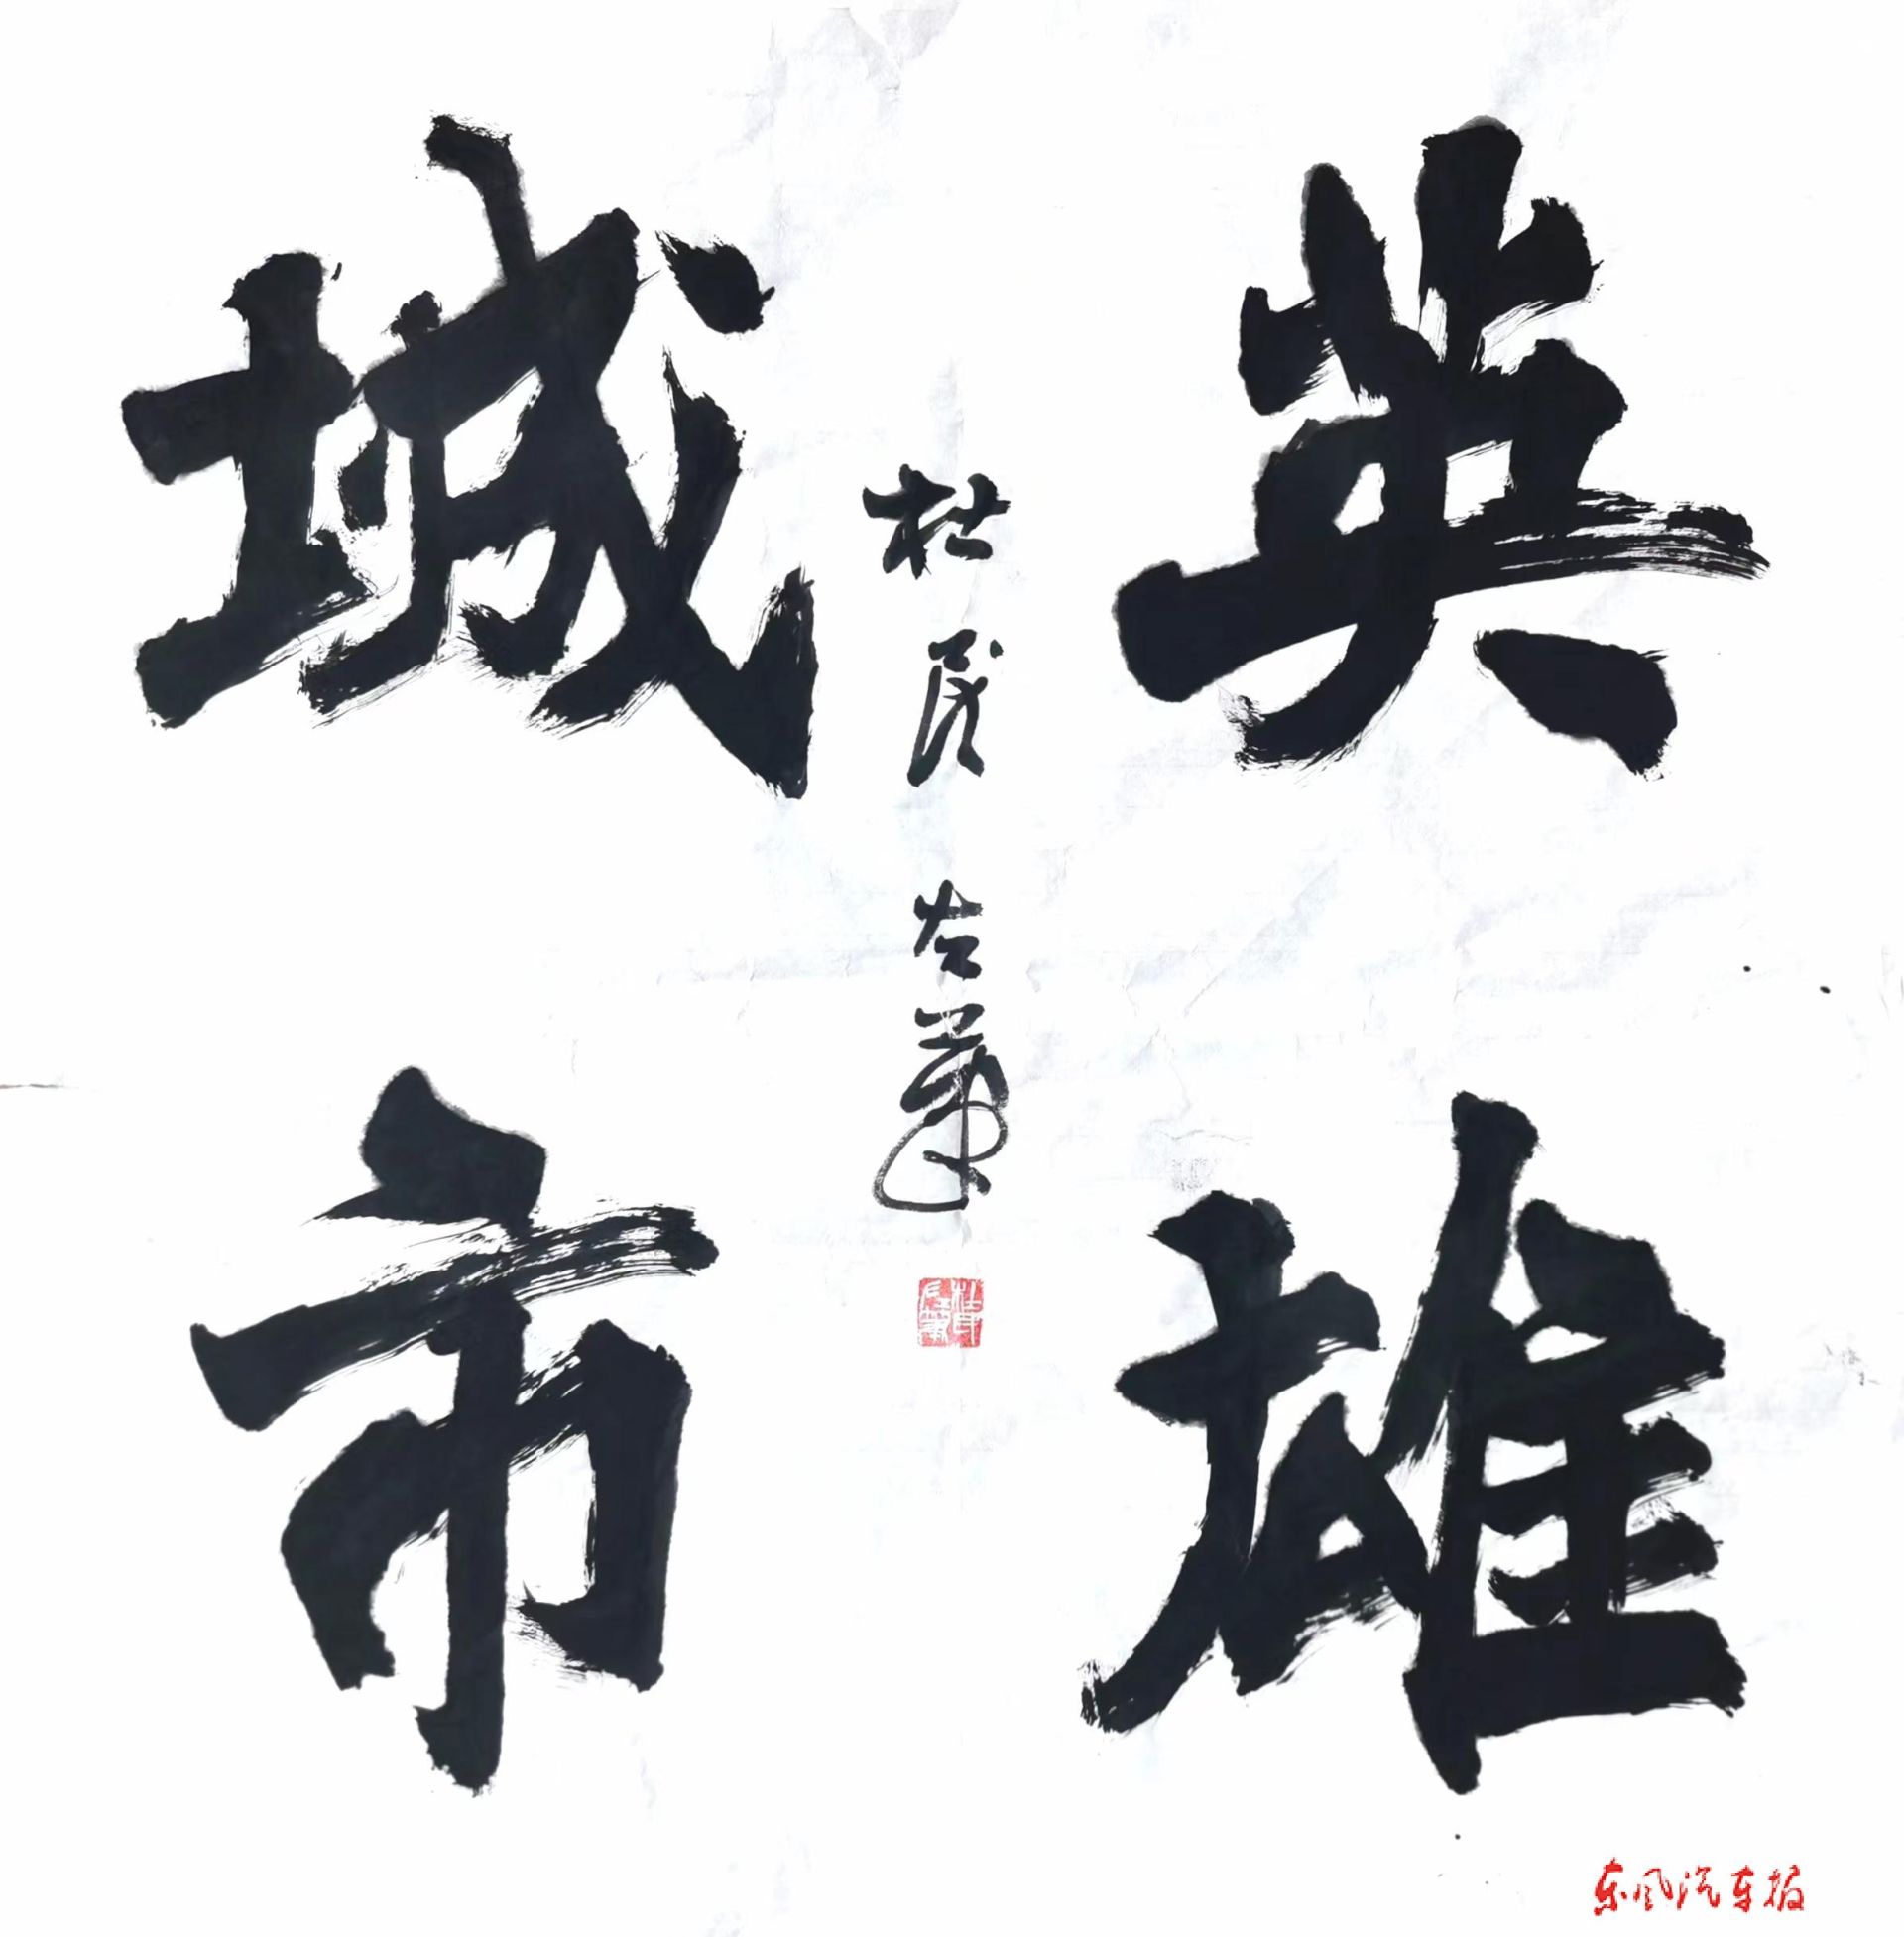 英雄
城市
杜民左笔
东风汽车报